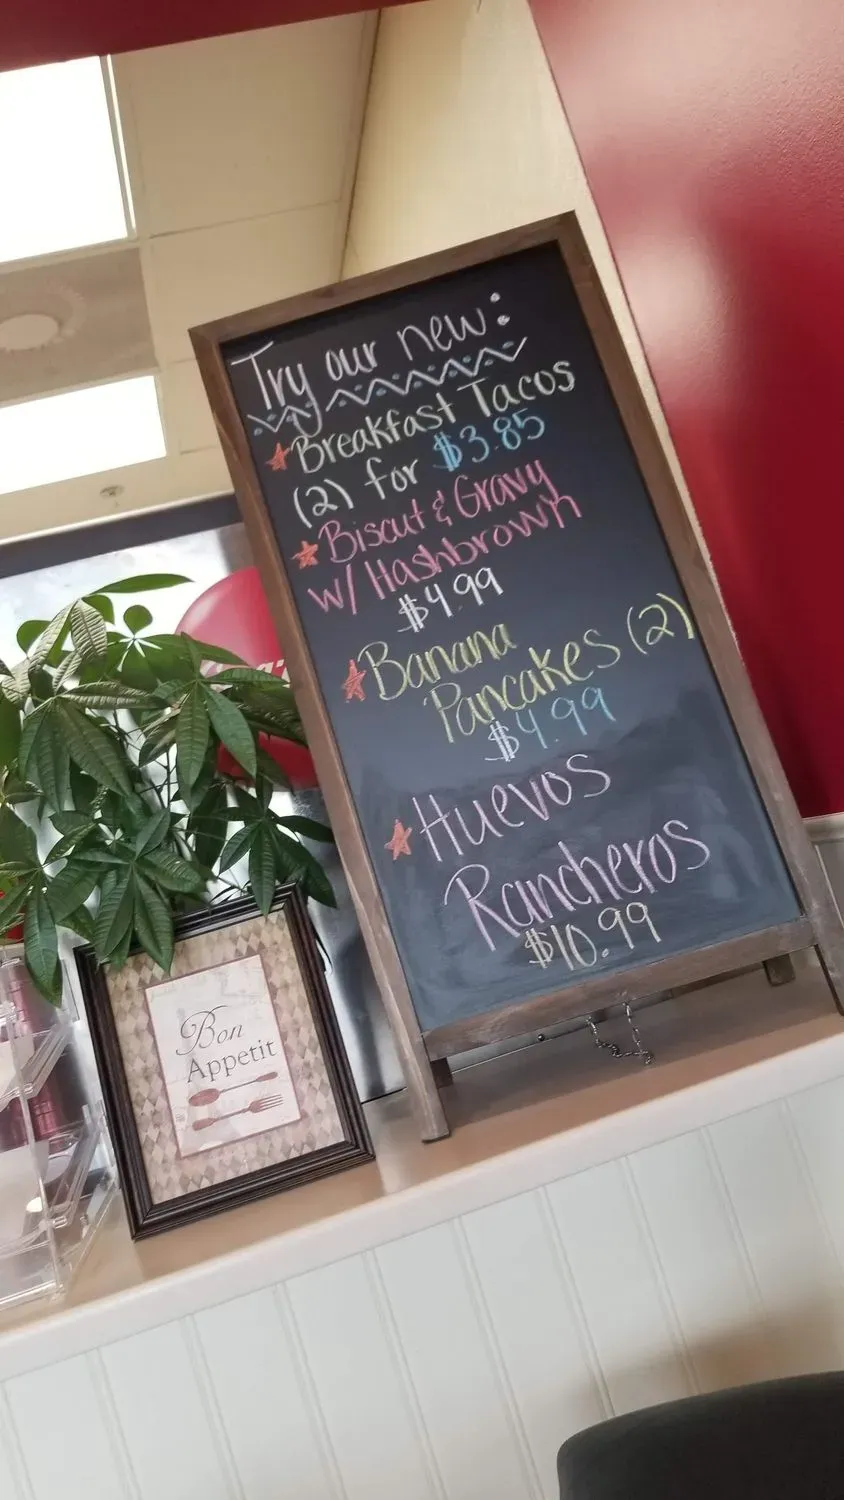 Try our new:
Breakfast Tacos
(2) for $3.85
Biscut & Gravy
w/ Hashbrown
$4.99
Banana
Pancakes (2)
$4.99
Huevos
Rancheros
$10.99
Bon
Appetit